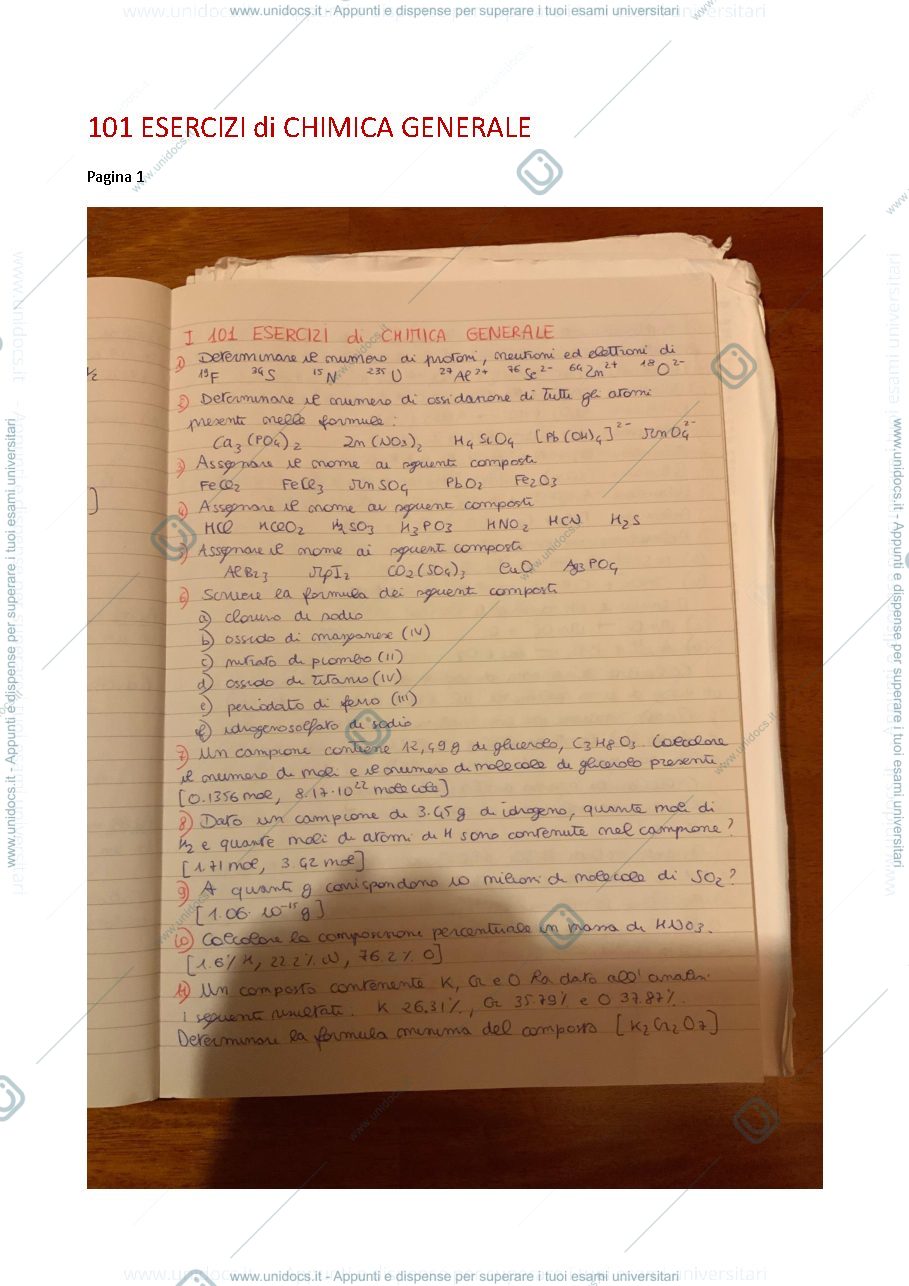 www.unidocs.it - Appunti e dispense per superare i tuoi esami universitari
101 ESERCIZI di CHIMICA GENERALE
Pagina 1
I 101 ESERCIZI di CHIMICA GENERALE
1) Determinare il numero di protoni, neutroni ed elettroni di
¹⁹F ³⁴S ¹⁵N ²³⁵U ²⁷Al³⁺ ⁷⁶Se²⁻ ⁶⁴Zn²⁺ ¹⁸O²⁻
2) Determinare il numero di ossidazione di tutti gli atomi
presenti nelle formule:
Ca₃(PO₄)₂ Zn(NO₃)₂ H₄SiO₄ [Pb(OH)₄]²⁻ MnO₄²⁻
3) Assegnare il nome ai seguenti composti
FeCl₂ FeCl₃ MnSO₄ PbO₂ Fe₂O₃
4) Assegnare il nome ai seguenti composti
HCl HClO₂ H₂SO₃ H₃PO₃ HNO₂ HCN H₂S
5) Assegnare il nome ai seguenti composti
AlBr₃ MgI₂ CO₂(SO₄)₃ CuO Ag₃PO₄
6) Scrivere la formula dei seguenti composti
a) cloruro di sodio
b) ossido di manganese (IV)
c) nitrato di piombo (II)
d) ossido di titanio (IV)
e) periodato di ferro (III)
f) idrogenosolfato di sodio
7) Un campione contiene 12,49 g di glicerolo, C₃H₈O₃. Calcolare
il numero di moli e il numero di molecole di glicerolo presenti
[0.1356 mol, 8.17·10²² molecole]
8) Dato un campione di 3.45 g di idrogeno, quante moli di
H₂ e quante moli di atomi di H sono contenute nel campione?
[1.71 mol, 3.42 mol]
9) A quanti g corrispondono 10 milioni di molecole di SO₂?
[1.06·10⁻¹⁵ g]
10) Calcolare la composizione percentuale in massa di HNO₃.
[1.6% H, 22.2% N, 76.2% O]
11) Un composto contenente K, Cr e O ha dato all'analisi
i seguenti risultati: K 26.31%, Cr 35.79% e O 37.87%.
Determinare la formula minima del composto [K₂Cr₂O₇]
www.unidocs.it - Appunti e dispense per superare i tuoi esami universitari